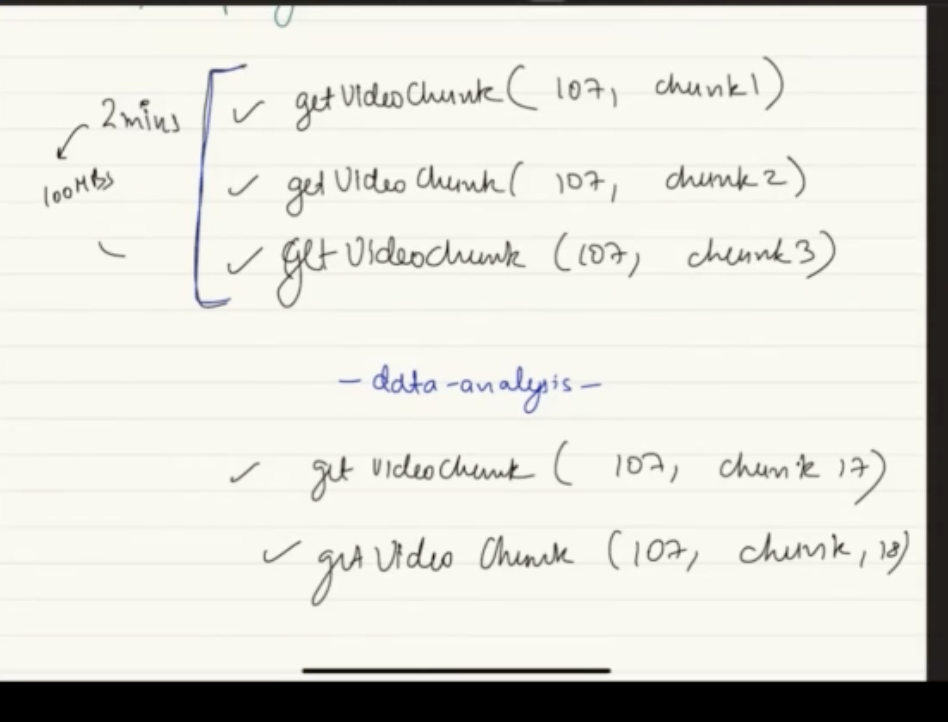 2mins
100MBs
getVideoChunk( 107, chunk1)
getVideoChunk( 107, chunk2)
getVideoChunk (107, chunk3)
- data-analysis -
get videoChunk ( 107, chunk 17)
getVideo Chunk (107, chunk, 18)